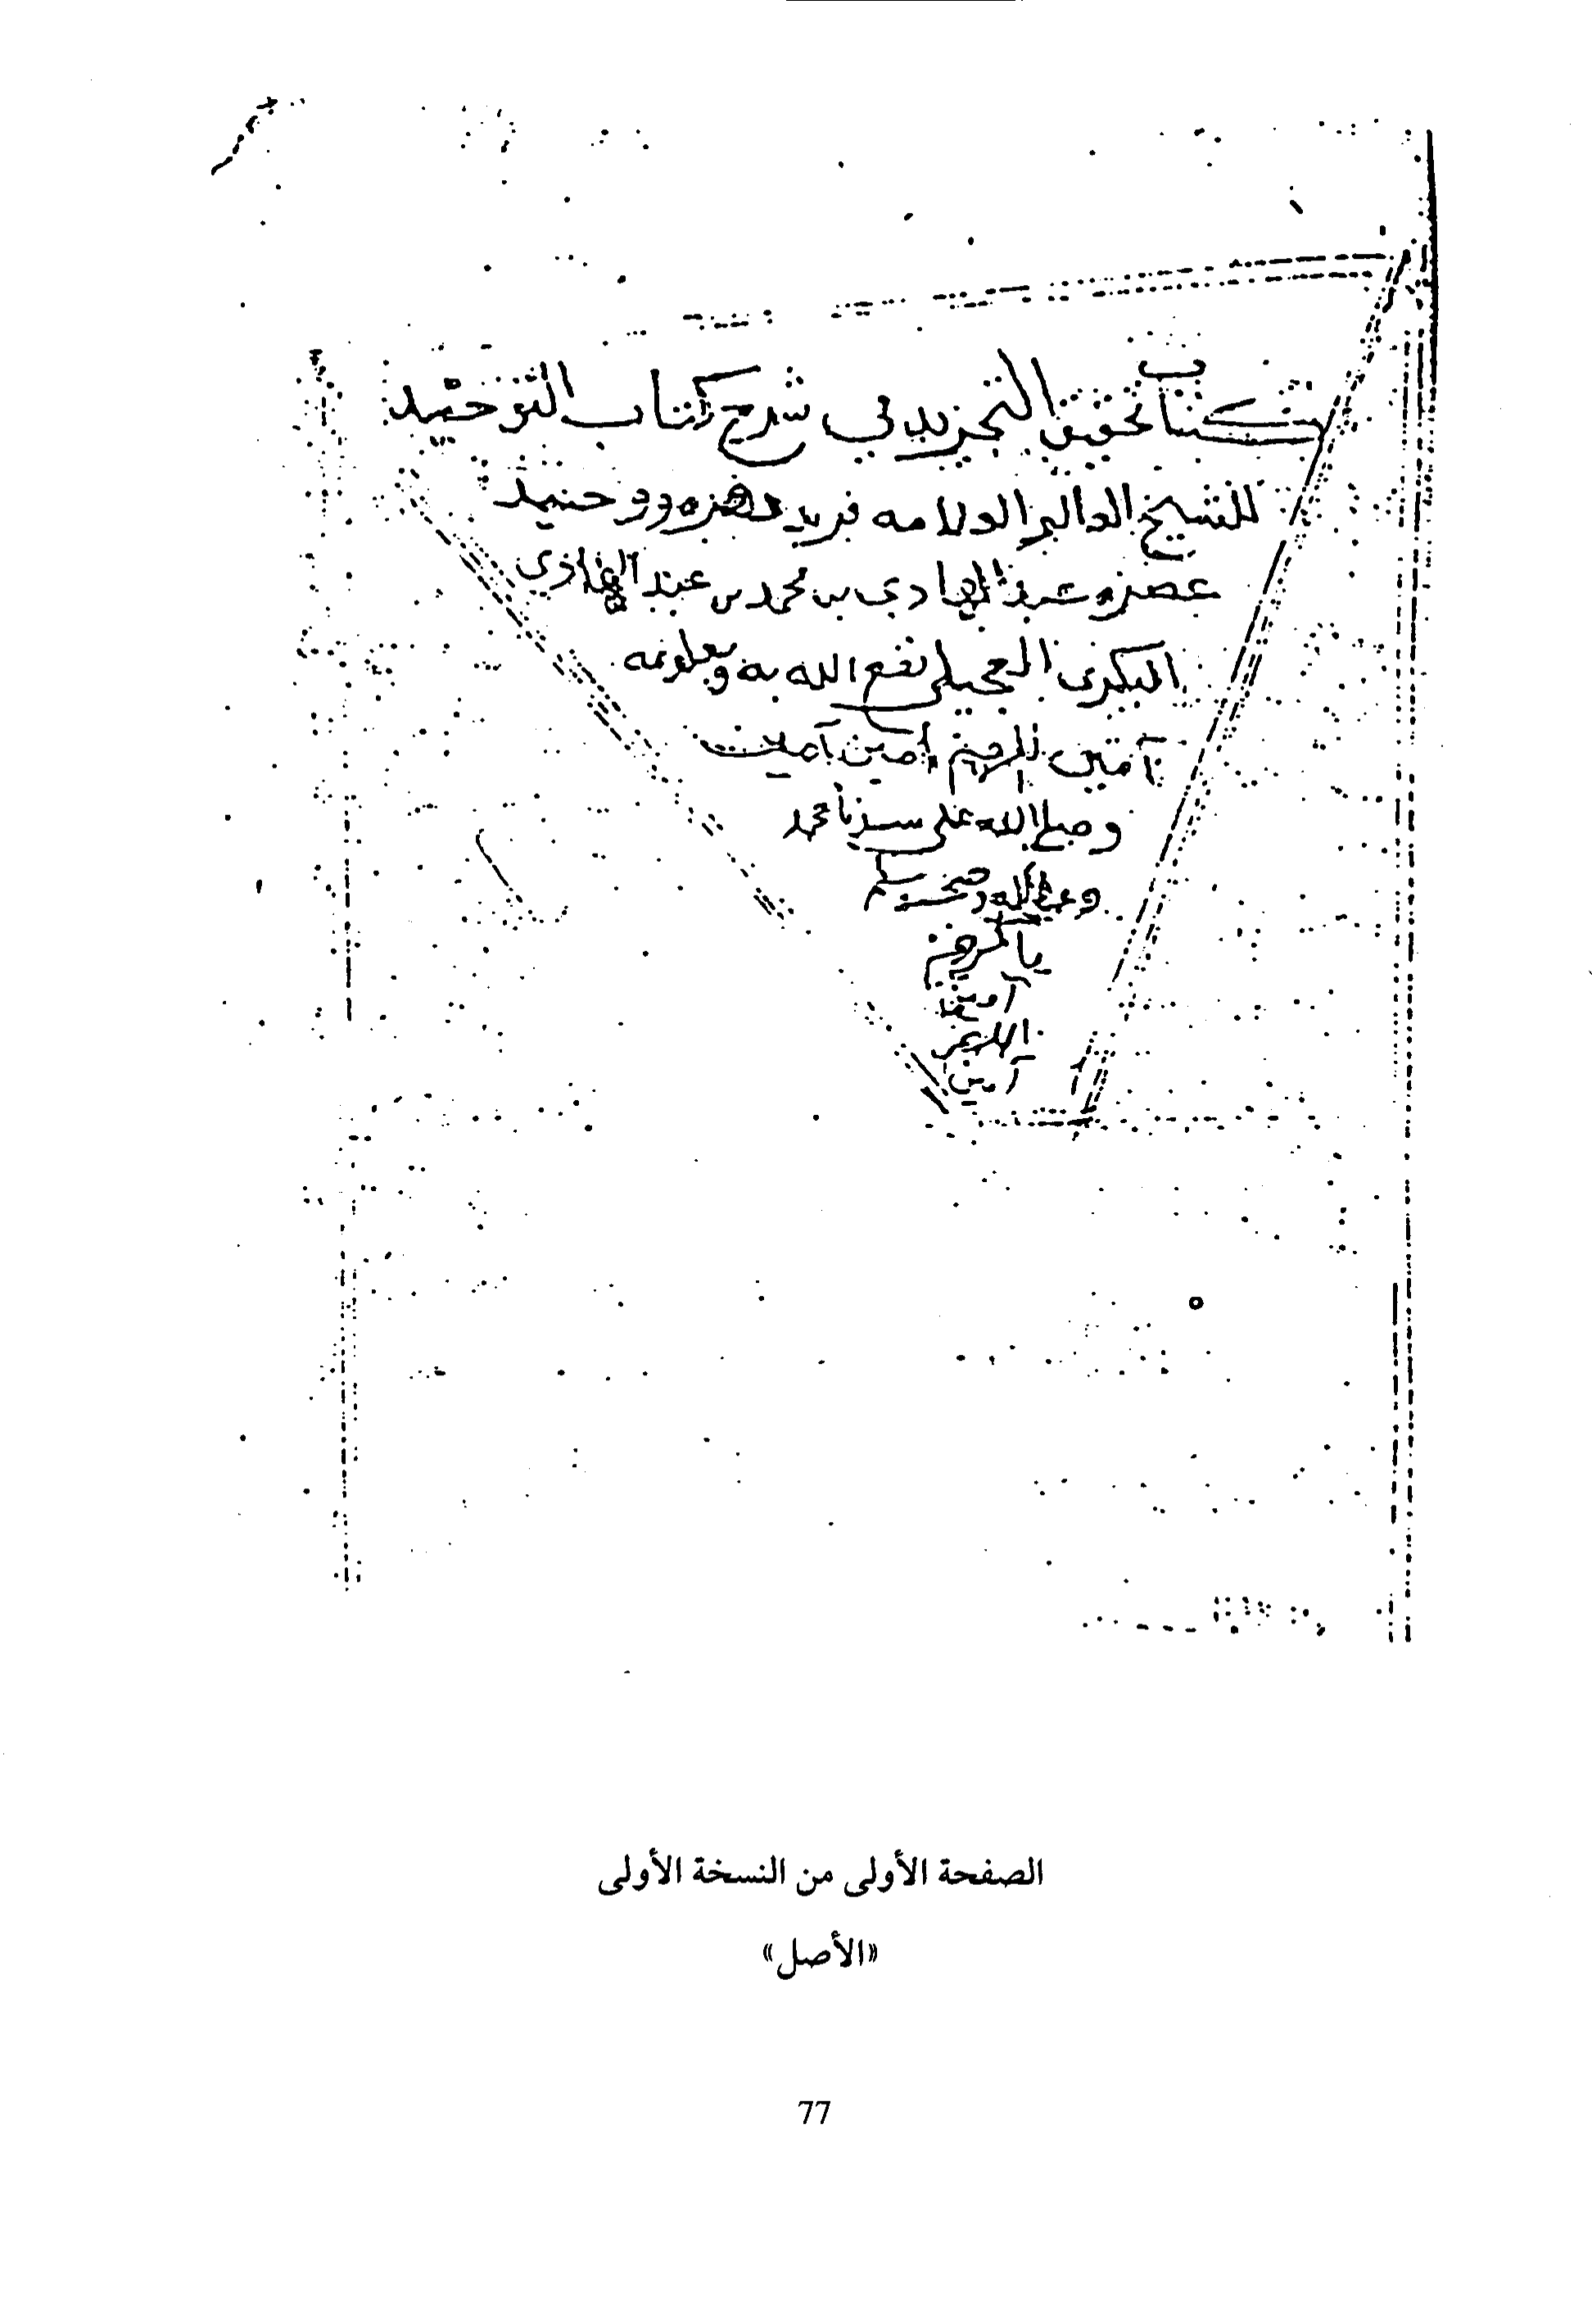 كتاب تحقيق التجريد في شرح كتاب التوحيد
للشيخ العالم العلامه فريد دهره ووحيد
عصره عبد الهادي بن محمد بن عبد الهادي
البكري العجيلي نفع الله به وبعلومه
آمين اللهم آمين آمين
وصلى الله على سيدنا محمد
وعلى آله وصحبه وسلم
آمين
اللهم
آمين
الصفحة الأولى من النسخة الأولى
«الأصل»
77